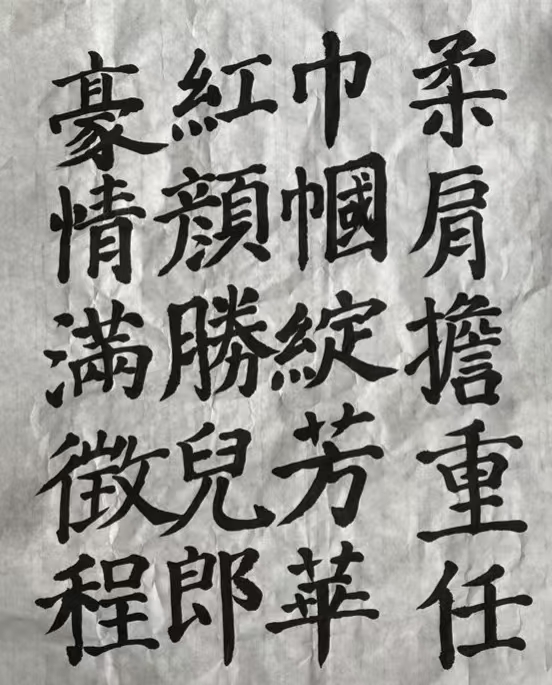 柔肩擔重任
巾幗綻芳華
紅顔勝兒郎
豪情滿徵程